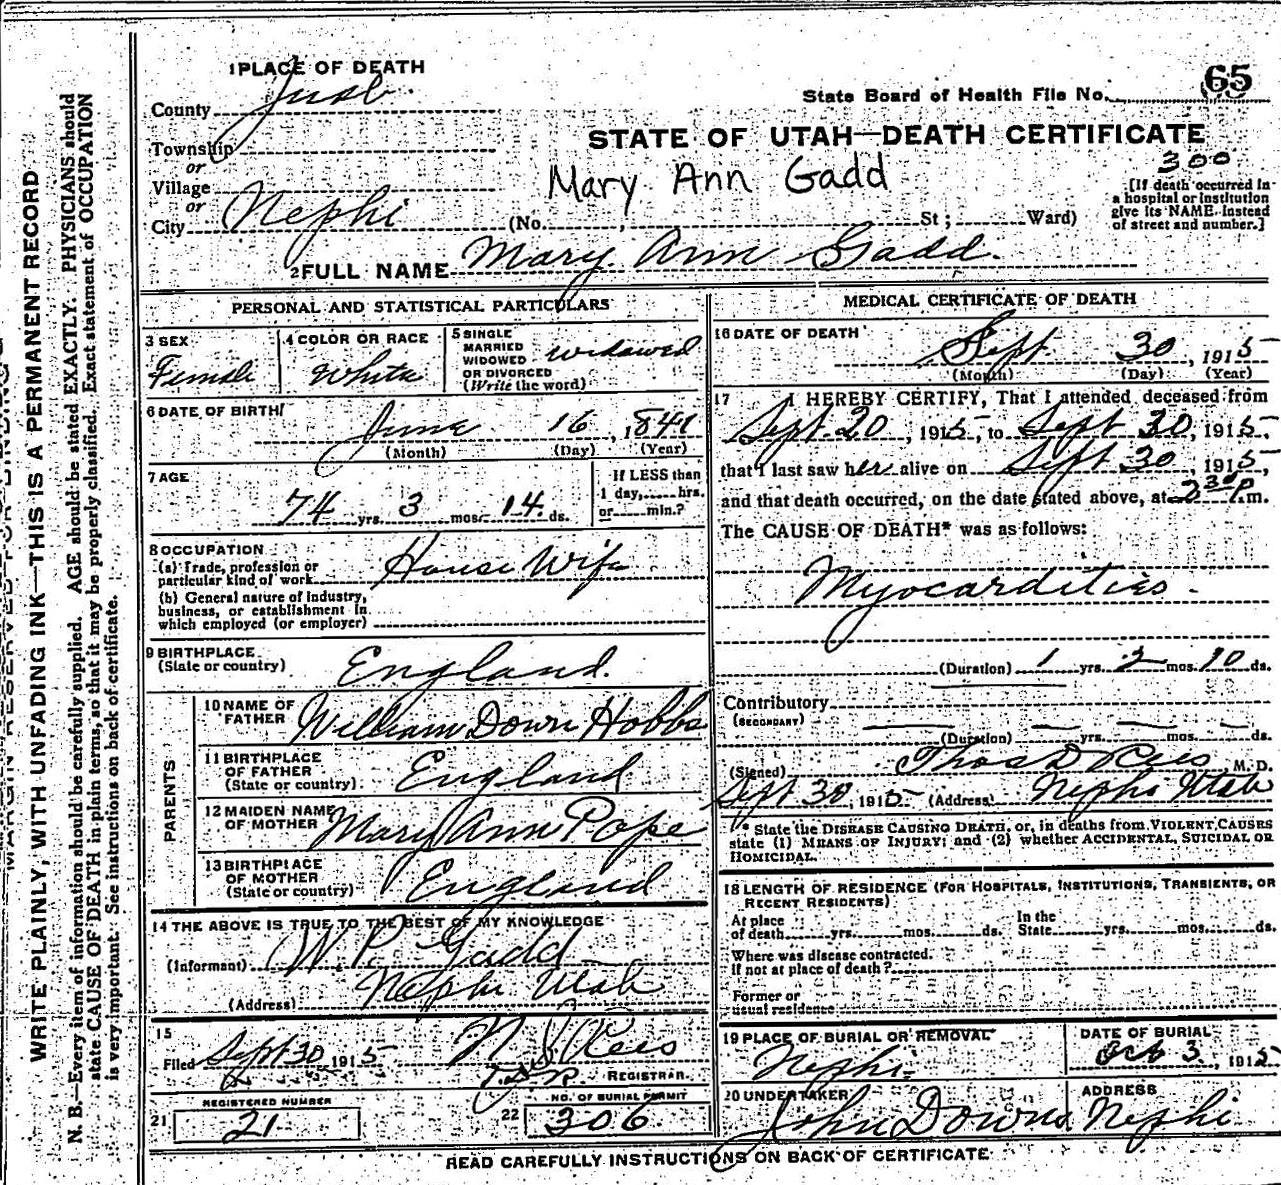 1 PLACE OF DEATH
County Juab.
State Board of Health File No. 65
Township
or
Village
or
City Nephi
STATE OF UTAH—DEATH CERTIFICATE
300
Mary Ann Gadd
(No. , St ; Ward)
[If death occurred in
a hospital or institution
give its NAME instead
of street and number.]
2 FULL NAME Mary Ann Gadd.
PERSONAL AND STATISTICAL PARTICULARS
3 SEX
Female
4 COLOR OR RACE
White
5 SINGLE
MARRIED
WIDOWED
OR DIVORCED
(Write the word)
Widowed
6 DATE OF BIRTH
June 16, 1841
(Month) (Day) (Year)
7 AGE
74 yrs. 3 mos. 14 ds.
If LESS than
1 day, hrs.
or min.?
8 OCCUPATION
(a) Trade, profession or
particular kind of work House Wife
(b) General nature of industry,
business, or establishment in
which employed (or employer)
9 BIRTHPLACE
(State or country) England.
PARENTS
10 NAME OF
FATHER William Down Hobbs
11 BIRTHPLACE
OF FATHER
(State or country) England
12 MAIDEN NAME
OF MOTHER Mary Ann Pope
13 BIRTHPLACE
OF MOTHER
(State or country) England
14 THE ABOVE IS TRUE TO THE BEST OF MY KNOWLEDGE
(Informant) W. P. Gadd
(Address) Nephi Utah
15
Filed Sept 30 1915 Rees
REGISTRAR.
REGISTERED NUMBER
21 21
NO. OF BURIAL PERMIT
22 306
MEDICAL CERTIFICATE OF DEATH
16 DATE OF DEATH
Sept. 30, 1915
(Month) (Day) (Year)
17 I HEREBY CERTIFY, That I attended deceased from
Sept. 20, 1915, to Sept 30, 1915,
that I last saw her alive on Sept 30, 1915,
and that death occurred, on the date stated above, at 2 30 P.m.
The CAUSE OF DEATH* was as follows:
Myocardities.
(Duration) 1 yrs. 2 mos. 10 ds.
Contributory
(SECONDARY)
(Duration) yrs. mos. ds.
(Signed) Thos D Rees, M. D.
Sept 30, 1915 (Address) Nephi Utah
* State the DISEASE CAUSING DEATH, or, in deaths from VIOLENT CAUSES
state (1) MEANS OF INJURY; and (2) whether ACCIDENTAL, SUICIDAL OR
HOMICIDAL.
18 LENGTH OF RESIDENCE (FOR HOSPITALS, INSTITUTIONS, TRANSIENTS, OR
RECENT RESIDENTS)
At place
of death yrs. mos. ds.
In the
State yrs. mos. ds.
Where was disease contracted.
If not at place of death?
Former or
usual residence
19 PLACE OF BURIAL OR REMOVAL
Nephi.
DATE OF BURIAL
Oct 3, 1915
20 UNDERTAKER
John Downs
ADDRESS
Nephi.
READ CAREFULLY INSTRUCTIONS ON BACK OF CERTIFICATE
WRITE PLAINLY, WITH UNFADING INK—THIS IS A PERMANENT RECORD
N. B.—Every item of information should be carefully supplied. AGE should be stated EXACTLY. PHYSICIANS should
state CAUSE OF DEATH in plain terms, so that it may be properly classified. Exact statement of OCCUPATION
is very important. See instructions on back of certificate.